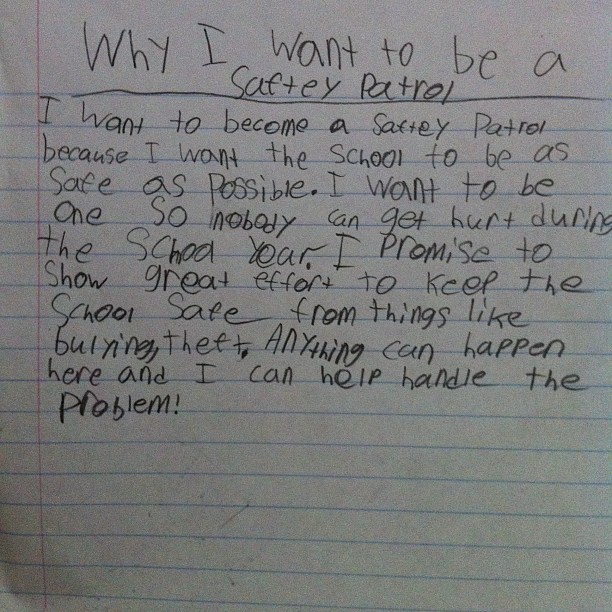 Why I want to be a
Saftey Patrol
I want to become a Saftey Patrol
because I want the School to be as
Safe as Possible. I want to be
one So nobody can get hurt during
the School Year. I Promise to
Show great effort to keep the
School Safe from things like
bullying, theft. Anything can happen
here and I can help handle the
Problem!